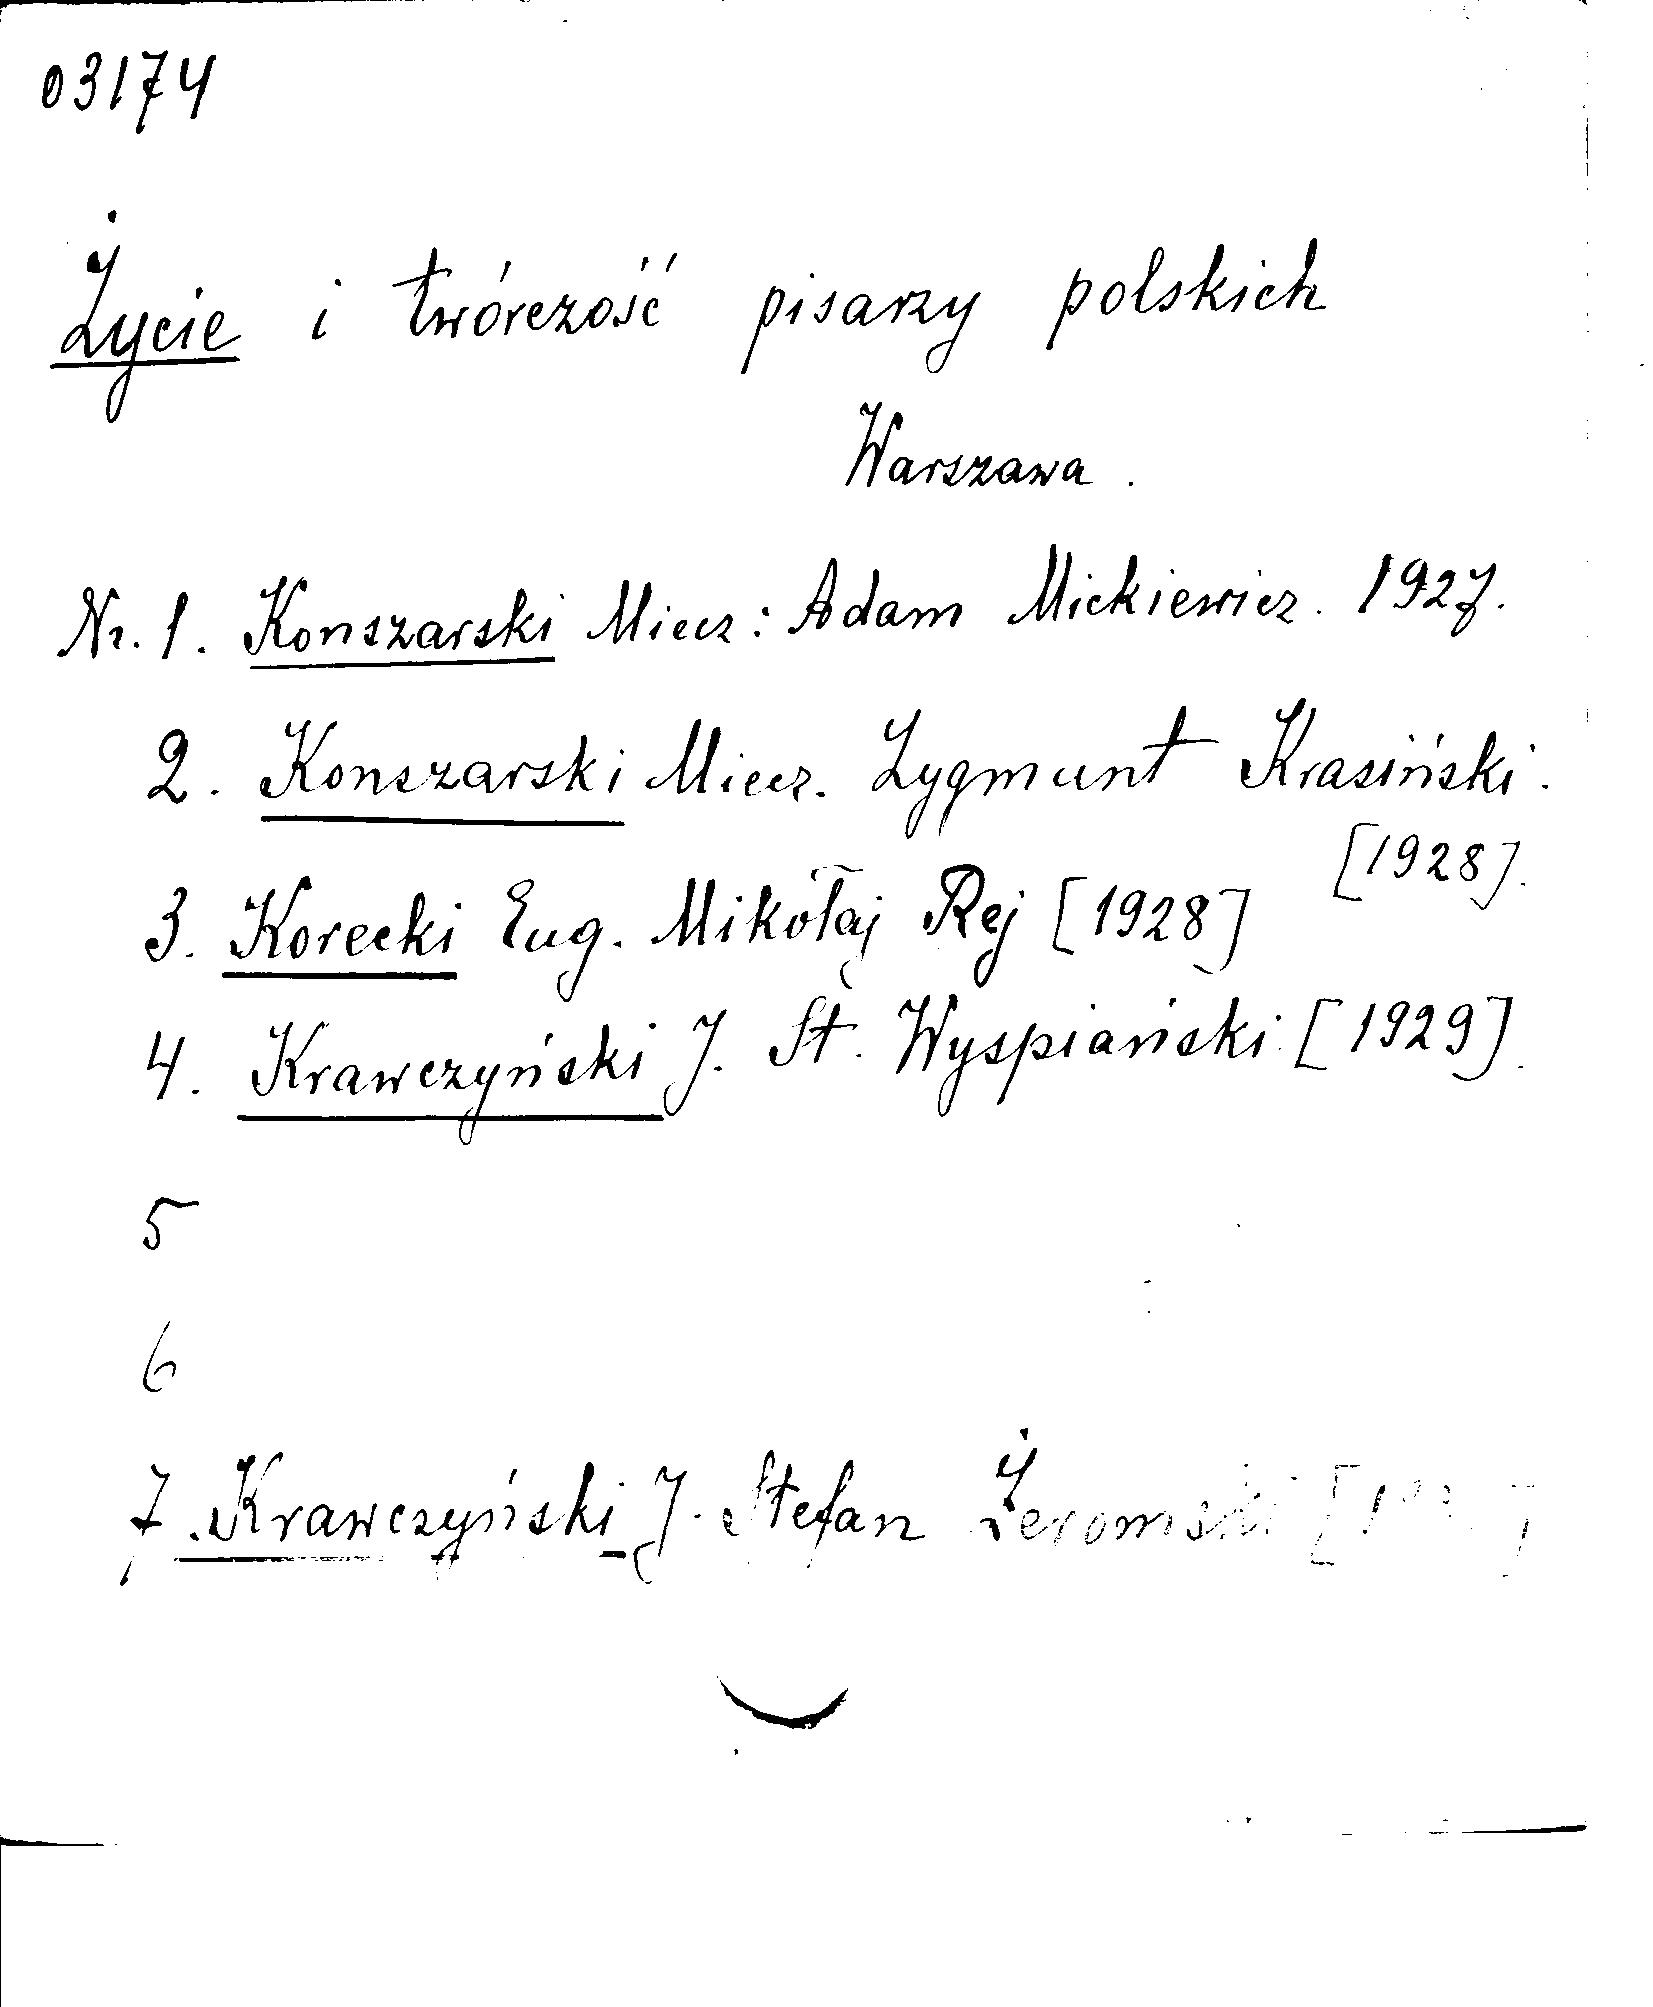 03174
Życie i twórczość pisarzy polskich
Warszawa.
Nr. 1. Konszarski Miecz: Adam Mickiewicz. 1927.
2. Konszarski Miecz. Zygmunt Krasiński.
[1928].
3. Korecki Eug. Mikołaj Rej [1928]
4. Krawczyński J. St. Wyspiański [1929].
5
6
7. Krawczyński J. Stefan Żeromski